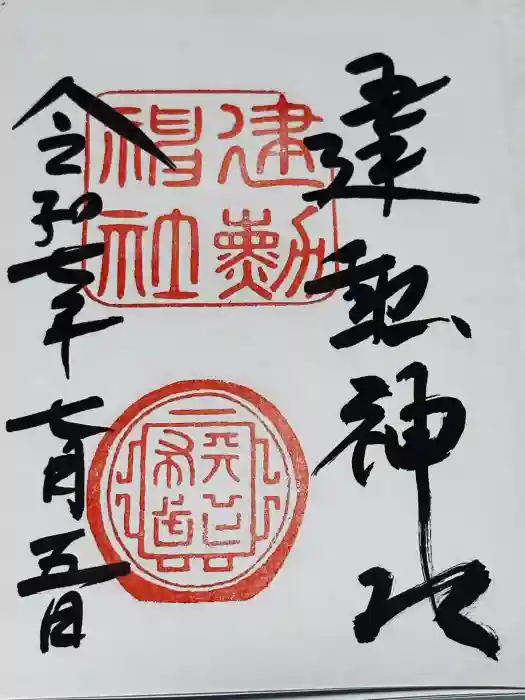 建勲神社
建勲
神社
令和七年七月五日